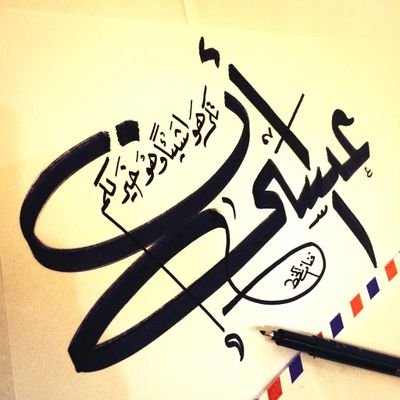 عسى أن
تكرهوا شيئاً وهو خير لكم